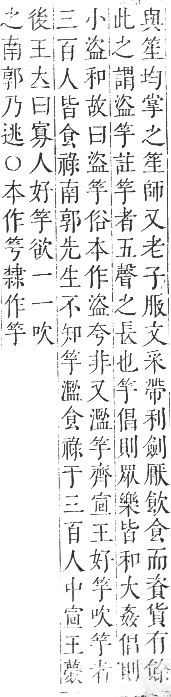 與笙均掌之笙師又老子服文采帶利劍厭飲食而資貨有餘
此之謂盜竽註竽者五聲之長也竽倡則眾樂皆和大姦倡則
小盜和故曰盜竽俗本作盜夸非又濫竽齊宣王好竽吹竽者
三百人皆食祿南郭先生不知竽濫食祿于三百人中宣王薨
後王立曰寡人好竽欲一一吹
之南郭乃逃○本作竽隸作竽